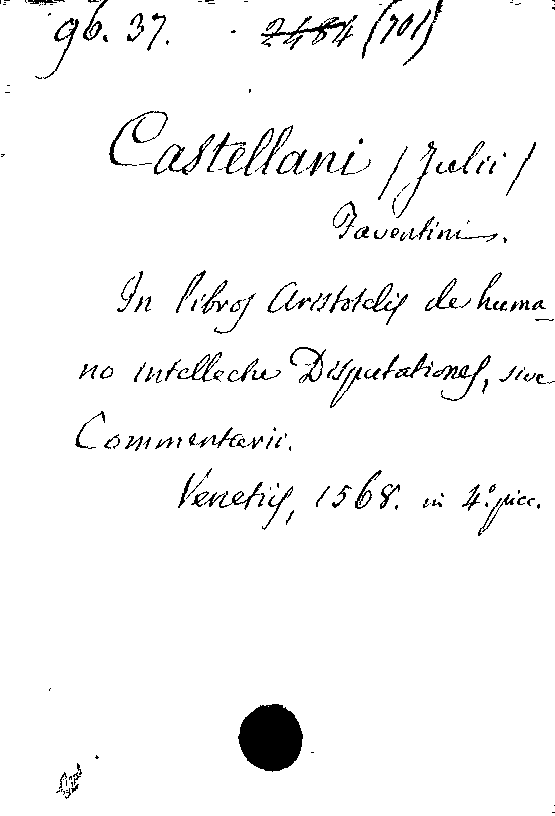 96. 37. 2484 (701)
Castellani / Julii /
Faventinis.
In libros Aristotelis de huma-
no intellectu Disputationes, sive
Commentarii.
Venetiis, 1568. in 4.° picc.